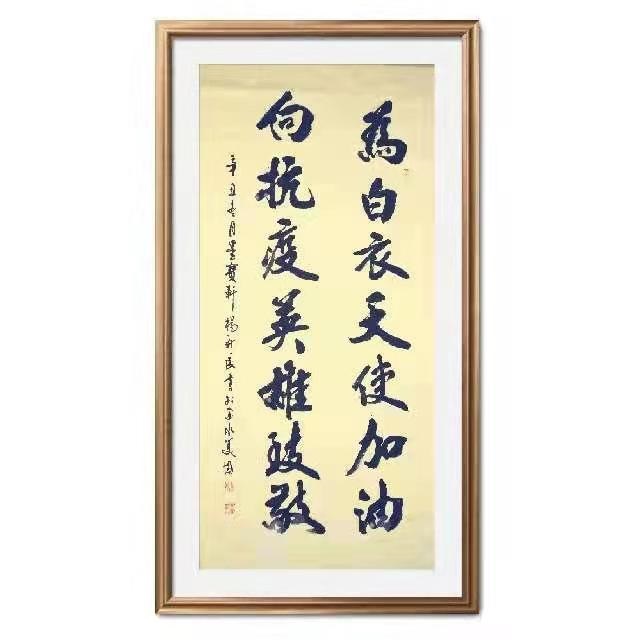 為白衣天使加油
向抗疫英雄致敬
辛丑春月墨寶軒楊新民書於